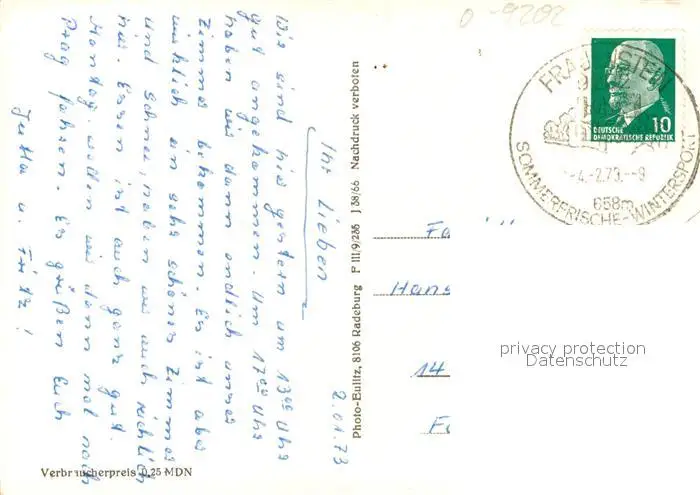 0-9202
2.01.73
Ihr Lieben
Wir sind hier gestern um 13⁰⁰ Uhr
gut angekommen. Um 17⁰⁰ Uhr
haben wir dann endlich unser
Zimmer bekommen. Es ist aber
wirklich ein sehr schönes Zimmer
und Schnee haben wir auch reichlich
hier. Essen ist auch ganz gut.
Montag wollen wir dann mal nach
Prag fahren. Es grüßen Euch
Jutta u. Fritz!
Verbraucherpreis 0,25 MDN
Photo-Eulitz, 8106 Radeburg P III/9/285 J 38/66 Nachdruck verboten
FRAUENSTEIN
-4.-2.73.--9
658m
SOMMERFRISCHE-WINTERSPORT
DEUTSCHE
DEMOKRATISCHE REPUBLIK
10
Fa
Hans
14
privacy protection
Datenschutz